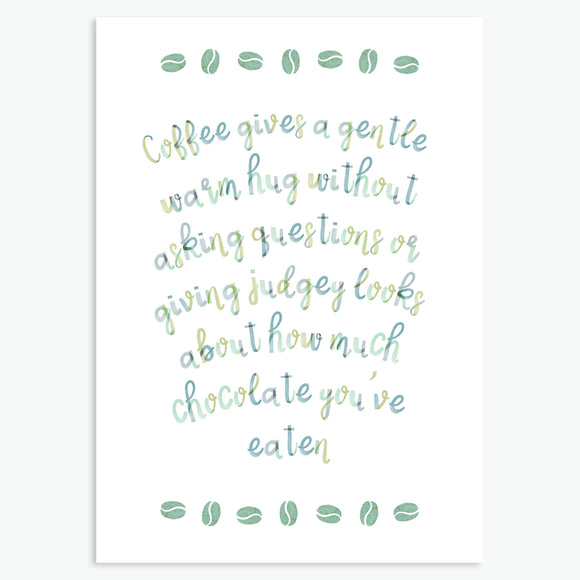 Coffee gives a gentle
warm hug without
asking questions or
giving judgey looks
about how much
chocolate you've
eaten